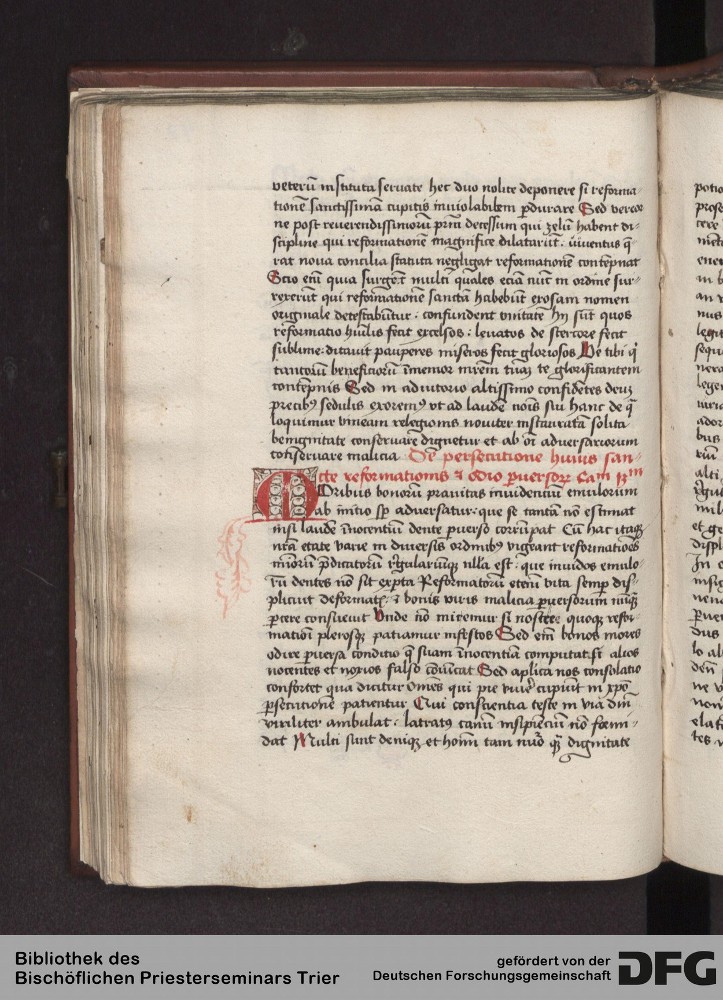 veterū instituta seruate hec duo nolite deponere si reforma
tionē sanctissimā cupitis inuiolabilem pdurare Sed vereor
ne post reuerendissimorū prm̄ decessum qui zelū habent di-
scipline qui reformationē magnifice dilatarūt : iuuentus q̄
rat noua concilia statuta negligat reformationē contēpnat
Scio em̄ quia surgēt multi quales eciā nūc in ordine sur-
rexerūt qui reformationē sanctā habebūt exosam nomen
originale detestabūtur : confundent vnitate hij sūt quos
reformatio hūiles fecit excelsos : leuatos de stercore fecit
sublime: ditauit pauperes miseros fecit gloriosos Ve tibi q̇
tantorū beneficiorū īmemor mr̄em tuā te glorificantem
contēpnis Sed in adiutorio altissimo confidētes deuȝ
precibꝰ sedulis exoremꝰ vt ad laudē nōis sui hanc de q̄
loquimur vineam religionis nouiter instauratā solita
benignitate conseruare dignetur et ab oī aduersariorum
malicia De persecutione huius san-
cte reformationis ⁊ odio puersoꝝ Cam 13m
Moribus bonorū prauitas inuidenciū emulorum
ab inicio sp aduersatur : que se tantū nō estimat
nisi laudē īnocentiū dente puerso corrūpat Cū hac itaqȝ
nrā etate varie in diuersis ordinibꝰ vigeant reformatioēs
minorū pdicatorū rl̄gulariūqȝ nlla est : que inuidos emulo-
rū dentes nō sit experta Reformatorū etem̄ vita semp dis-
plicuit deformatꝭ : ⁊ bonis viris malicia puersorum nūqȝ
pcere consueuit Vnde nō miremur si nostre quoqȝ refor-
mationi plerosqȝ patiamur infestos Sed em̄ bonos mores
odire puersa conditio q̄ suam īnocentiā computat si alios
nocentes et noxios falso Sed aplica nos consolatio
confortet qua dicitur Omēs qui pie viuē cupiūt in xpō
psecutionē patientur Qui conscientia teste in via dnī
viriliter ambulat : latratꝰ canū insipiēciū nō formi-
dat Multi sunt deniqȝ et hoīm tam nūō qȝ dignitate
Bibliothek des
Bischöflichen Priesterseminars Trier
gefördert von der
Deutschen Forschungsgemeinschaft
DFG